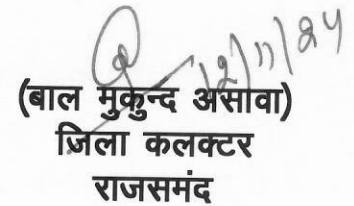 12/11/24
(बाल मुकुन्द असावा)
ज़िला कलक्टर
राजसमंद